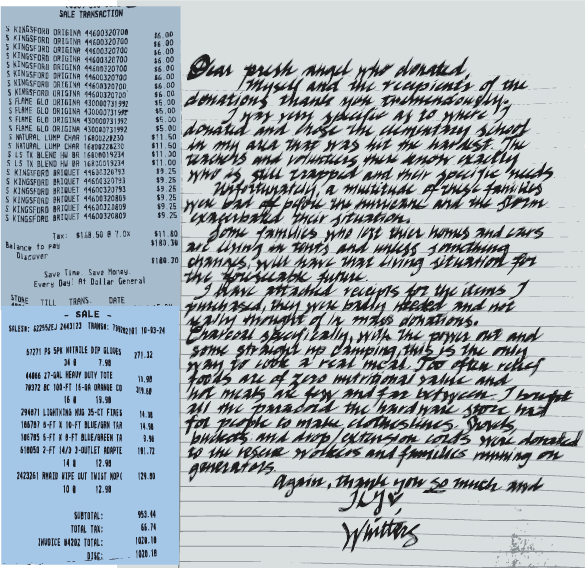 SALE TRANSACTION
S KINGSFORD ORIGINA 44600320700 $6.00
S KINGSFORD ORIGINA 44600320700 $6.00
S KINGSFORD ORIGINA 44600320700 $6.00
S KINGSFORD ORIGINA 44600320700 $6.00
S KINGSFORD ORIGINA 44600320700 $6.00
S KINGSFORD ORIGINA 44600320700 $6.00
S KINGSFORD ORIGINA 44600320700 $6.00
S FLAME GLO ORIGINA 43000731992 $5.00
S FLAME GLO ORIGINA $5.00
S FLAME GLO ORIGINA 43000731992 $5.00
S FLAME GLO ORIGINA 43000731992 $5.00
S NATURAL LUMP CHAR 16800228230 $11.50
S NATURAL LUMP CHAR 16800228230 $11.50
S LS TX BLEND HW BR 16800019234 $11.00
S LS TX BLEND HW BR 16800019234 $11.00
S KINGSFORD BRIQUET 44600320793 $9.25
S KINGSFORD BRIQUET 44600320793 $9.25
S KINGSFORD BRIQUET 44600320793 $9.25
S KINGSFORD BRIQUET 44600320809 $9.25
S KINGSFORD BRIQUET 44600320809 $9.25
S KINGSFORD BRIQUET 44600320809 $9.25
Tax: $168.50 @ 7.0% $11.80
Balance to pay $180.30
Discover $180.30
Save Time. Save Money.
Every Day! At Dollar General
STORE TILL TRANS. DATE
- SALE -
SALES#: TRANS#: 10-03-24
67271 PG 5PR NITRILE DIP GLOVES 271.32
34 @ 7.98
44066 27-GAL HEAVY DUTY TOTE 11.98
70372 BC 100-FT 16-GA ORANGE CO 319.60
16 @ 19.98
294871 LIGHTNING MUG 35-CT FINES 14.98
186787 8-FT X 10-FT BLUE/GRN TAR 14.98
186785 6-FT X 8-FT BLUE/GREEN TA 9.98
618050 2-FT 14/3 3-OUTLET ADAPTE 181.72
14 @ 12.98
2423261 RMAID WIPE OUT TWIST MOP( 129.80
10 @ 12.98
SUBTOTAL: 953.44
TOTAL TAX: 66.74
INVOICE 84202 TOTAL: 1020.18
DISC: 1020.18
Dear fresh angel who donated,
Myself and the recipients of the
donations thank you tremendously.
I was very specific as to where I
donated and chose the elementary school
in my area that was hit the hardest. The
teachers and volunteers there know exactly
who is still trapped and their specific needs
Unfortunately, a multitude of these families
were bad off before the hurricane and the storm
exacerbated their situation.
Some families who lost their homes and cars
are living in tents and unless something
changes, will have that living situation for
the foreseeable future.
I have attached receipts for the items I
purchased, they were badly needed and not
really thought of in mass donations.
Charcoal specifically, with the power out and
some straight up camping, this is the only
way to cook a real meal. Too often relief
foods are of zero nutritional value and
hot meals are few and far between. I bought
all the paracord the hardware store had
for people to make clotheslines. Shovels,
buckets and drop/extension cords were donated
to the rescue workers and families running on
generators.
Again, thank you so much and
ILY♡,
Whitters